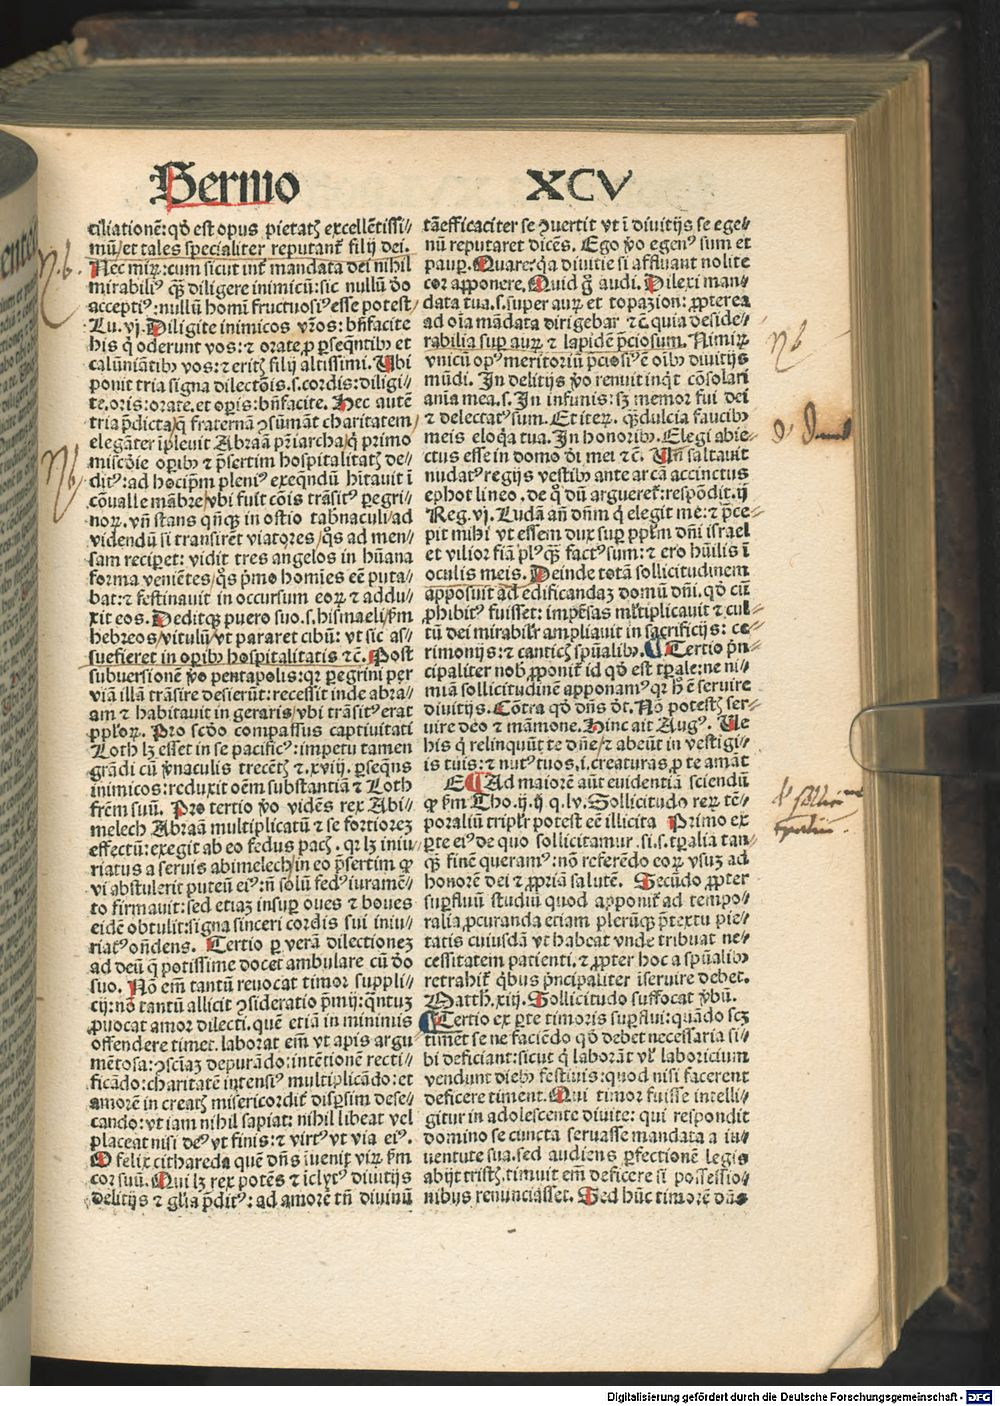 Sermo XCV
ciliationē: qđ est opus pietatꝭ excellētissi⸗
mū/et tales specialiter reputanť filij dei.
Nec miꝝ: cum sicut inť mandata dei nihil
mirabiliꝰ qꝫ diligere inimicū: sic nullū đo
acceptiꝰ: nullū homī fructuosiꝰ esse potest/
Lu. vj. Diligite inimicos vr̄os: bn̄facite
his q̇ oderunt vos: ⁊ orate ꝓ ꝑseqn̄tibꝰ et
calūniātibꝰ vos: ⁊ eritꝭ filij altissimi. Ubi
ponit tria signa dilectōis .s. cordis: diligi⸗
te. oris: orate. et oꝑis: bn̄facite. Hec autē
tria p̄dicta/q̇ fraternā ꝯsūmāt charitatem
elegāter īpleuit Abraā pr̄iarcha/q̇ primo
miscđie oꝑibꝰ ⁊ p̄sertim hospitalitatꝭ de⸗
ditꝰ: ad hoc ip̄m pleniꝰ exeqn̄dū hītauit ī
cōualle mābre/vbi fuit cōis trāsitꝰ ꝑegri⸗
noꝝ. vn̄ stans qn̄qꝫ in ostio tab̄naculi/ad
videndū si transirēt viatores/q̊s ad men⸗
sam reciꝑet: vidit tres angelos in hūana
forma veniētes/q̊s p̄mo homīes eē puta⸗
bat: ⁊ festinauit in occursum eoꝝ ⁊ addu⸗
xit eos. Deditqꝫ puero suo .s. hismaeli/ẜm
hebreos/vitulū/vt pararet cibū: vt sic as⸗
suefieret in oꝑibꝰ hospitalitatis ⁊c̄. Post
subuersionē ꝟo pentapolis: qꝛ ꝑegrini per
viā illā trāsire desierūt: recessit inde abra⸗
am ⁊ habitauit in geraris/vbi trāsitꝰ erat
ppl̓oꝝ. Pro scđo compassus captiuitati
Loth lꝫ esset in se pacificꝰ: impetu tamen
grādi cū ꝟnaculis trecētꝭ ⁊ .xviij. ꝑseqn̄s
inimicos: reduxit oēm substantiā ⁊ Loth
fr̄em suū. Pro tertio ꝟo vidēs rex Abi⸗
melech Abraā multiplicatū ⁊ se fortiorez
effectū: exegit ab eo fedus pacꝭ. qꝛ lꝫ iniu⸗
riatus a seruis abimelech/in eo p̄sertim ꝙ
vi abstulerit puteū eiꝰ: n̄ solū fedꝰ iuramē⸗
to firmauit: sed etiaz insuꝑ oues ⁊ boues
eidē obtulit: signa sinceri cordis sui iniu⸗
riatꝰ on̄dens. Tertio ꝑ verā dilectionez
ad deū q̄ potissime docet ambulare cū đo
suo. Nō em̄ tantū reuocat timor suppli⸗
cij: nō tantū allicit ꝯsideratio p̄mij: q̄ntuz
ꝓuocat amor dilecti. quē etiā in minimis
offendere timet. laborat em̄ vt apis argu⸗
mētosa: ꝯsciaꝫ depurādo: intētionē recti⸗
ficādo: charitatē intensiꝰ multiplicādo: et
amorē in creatꝭ misericordiť disꝑsim dese⸗
cando: vt iam nihil sapiat: nihil libeat vel
placeat nisi deꝰ vt finis: ⁊ virtꝰ vt via eiꝰ.
O felix cithareda quē dn̄s īuenit viꝝ ẜm
cor suū. Qui lꝫ rex potēs ⁊ īclytꝰ diuitijs
delitijs ⁊ gl̓ia p̄ditꝰ: ad amorē tn̄ diuinū
tā efficaciter se ꝯuertit vt ī diuitijs se ege⸗
nū reputaret dicēs. Ego ꝟo egenꝰ sum et
pauꝑ. Quare: q̇a diuitie si affluant nolite
cor apponere. Quid g̊ audi. Dilexi man⸗
data tua .s. super auꝝ et topazion: ꝓpterea
ad oīa mādata dirigebar ⁊c̄. quia deside⸗
rabilia suꝑ auꝝ ⁊ lapidē p̄ciosum. Nimiꝝ
vnicū opꝰ meritoriū p̄ciosiꝰ ē oībꝰ diuitijs
mūdi. In delitijs ꝟo renuit inq̇t cōsolari
aīa mea .s. In infimis: sꝫ memor fui dei
⁊ delectatꝰ sum. Et iteꝝ. qꝫ dulcia faucibꝰ
meis eloq̇a tua. In honoribꝰ. Elegi abie⸗
ctus esse in domo đi mei ⁊c̄. Un̄ saltauit
nudatꝰ regijs vestibꝰ ante arcā accinctus
ephot lineo. de q̊ dū argueret̉: respōdit .ij.
Reg. vj. Ludā an̄ dn̄m q̇ elegit me: ⁊ p̄ce⸗
pit mihi vt essem dux suꝑ ppl̓m dn̄i israel
et vilior fiā pl̓ꝰ qꝫ factꝰ sum: ⁊ ero hūilis ī
oculis meis. Deinde totā sollicitudinem
apposuit ad edificandaz domū dn̄i. qđ cū
ꝓhibitꝰ fuisset: impēsas ml̓tiplicauit ⁊ cul⸗
tū dei mirabil̓r ampliauit in sacrificijs: ce⸗
rimonijs: ⁊ canticꝭ spūalibꝰ. ¶ Tertio p̄n⸗
cipaliter nob̓ ꝓponiť id qđ est tꝑale: ne ni⸗
miā sollicitudinē apponamꝰ qꝛ h̓ ē seruire
diuitijs. Cōtra qđ dn̄s dt̄. Nō potestꝭ ser⸗
uire deo ⁊ māmone. Hinc ait Augꝰ. Ue
his q̇ relinquūt te dn̄e/⁊ abeūt in vestigi⸗
is tuis: ⁊ nutꝰ tuos .i. creaturas ꝓ te amāt
E ¶ Ad maiorē aūt euidentiā sciendū
ꝙ ẜm Tho. ij. ij. q. lv. Sollicitudo reꝝ tē⸗
poraliū tripl̓r potest eē illicita Primo ex
ꝑte eiꝰ de quo sollicitamur .si .s. tꝑalia tan⸗
qꝫ finē queramꝰ: nō referēdo eoꝝ vsuꝫ ad
honorē dei ⁊ ꝓpriā salutē. Secūdo ꝓpter
suꝑfluū studiū quod apponiť ad tempo⸗
ralia ꝓcuranda etiam plerūqꝫ p̄textu pie⸗
tatis cuiusdā vt habeat vnde tribuat ne⸗
cessitatem patienti. ⁊ ꝓpter hoc a spūalibꝰ
retrahiť q̇bus p̄ncipaliter īseruire debet.
Matth. xiij. Sollicitudo suffocat ꝟbū.
¶ Tertio ex ꝑte timoris suꝑflui: quādo scꝫ
timet se ne faciēdo qđ debet necessaria si⸗
bi deficiant: sicut q̇ laborāt vl̓ laboricium
vendunt diebꝰ festiuis: quod nisi facerent
deficere timent. Qui timor fuisse intelli⸗
gitur in adolescente diuite: qui respondit
domino se cuncta seruasse mandata a iu⸗
uentute sua. sed audiens ꝑfectionē legis
abijt tristꝭ. timuit em̄ deficere si possessio⸗
nibus renunciasset. Sed hūc timorē dn̄s
Digitalisierung gefördert durch die Deutsche Forschungsgemeinschaft - DFG